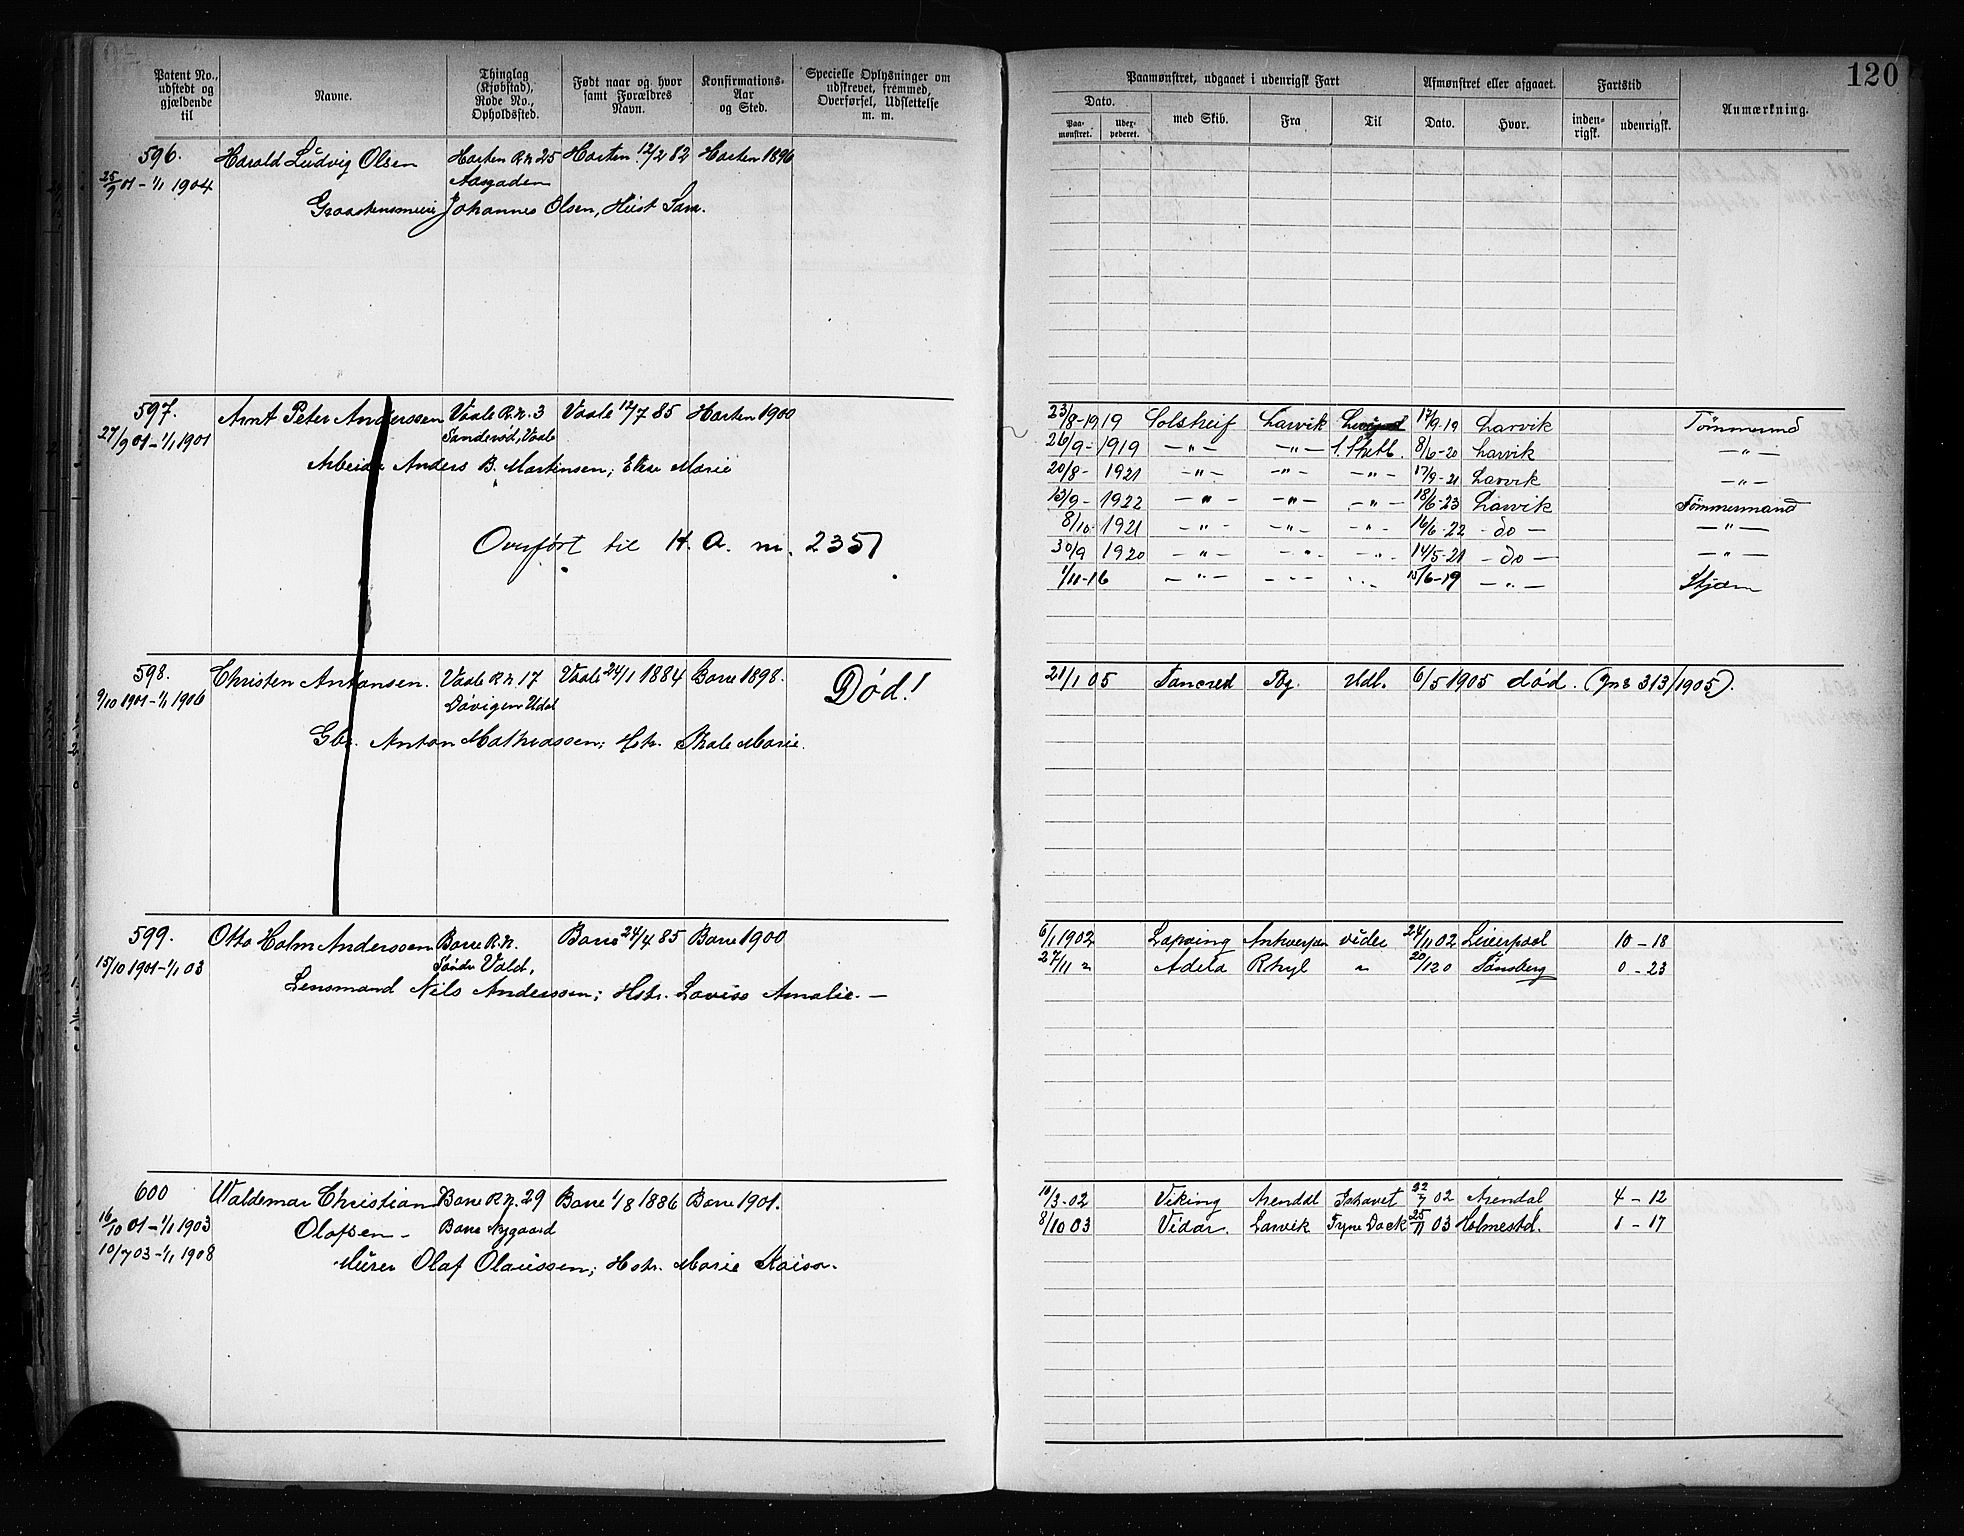 120
Patent No., udstedt og gjældende til
Navne.
Thinglag (Kjøbstad), Rode No., Opholdssted.
Født naar og hvor samt Forældres Navn.
Konfirmations-Aar og Sted.
Specielle Oplysninger om udskrevet, fremmed, Overførsel, Udslettelse m. m.
Paamønstret, udgaaet i udenrigsk Fart
Afmønstret eller afgaaet.
Fartstid
Anmærkning.
Dato.
Paa-mønstret.
Uder-pederet.
med Skib.
Fra
Til
Dato.
Hvor.
inden-rigsk.
udenrigsk.
596. Harald Ludvig Olsen Horten R.N 25 Horten 12/2 82 Horten 1896
25/9 01 - 1/1 1904 Aasgaden
Johannes Olsen,
597. Arnt Peter Anderssen Vaale R.N. 3 Vaale 12/7 85 Horten 1900
27/9 01 - 1/1 1901 Sanderød, Vaale
Anders B. Martinsen; Else Marie
Overført til H. A. nr. 2351
23/8-1919 Solstreif Larvik 17/9-19 Larvik
26/9-1919 -"- -"- S. Shetl. 8/6-20 Larvik -"-
20/8-1921 -"- -"- -"- 17/9-21 Larvik -"-
13/9-1922 -"- -"- -"- 18/6-23 Larvik Tømmermand
8/10-1921 -"- -"- -"- 16/6-22 - do - -"-
30/9 1920 -"- -"- -"- 14/5-21 - do - -"-
1/11-16 -"- - - - -"- 15/6-19 -"-
598. Christen Antonsen. Vaale R.N. 17 Vaale 24/1 1884 Borre 1898. Død!
9/10 1901 - 1/1 1906
Anton Mathiassen; Hstr. Marie.
21/1 05 Tancred Tbg. Udl. 6/5 1905 død. (Jns 313/1905).
599. Otto Holm Anderssen Borre R.N. Borre 24/4 85 Borre 1900
15/10 1901 - 1/1 03 Søndre Vold,
Lensmand Nils Anderssen; Hstr. Lovise Amalie. -
6/1 1902 Lapwing Antwerpen videre 24/11 02 Liverpool 10 - 18
27/11 " Adela Rhyl " 20/12 0 Tønsberg 0 - 23
600 Waldemar Christian Borre R.N. 29 Borre 1/8 1886 Borre 1901.
16/10 01 - 1/1 1903 Olafsen - Borre Nygaard
10/7 03 - 1/1 1908 Murer Olaf Olaussen; Hstr. Marie Kaisa.
10/3-02 Viking Arendal Ishavet 22/7 02 Arendal 4 - 12
8/10 03 Vidar. Larvik Tyne Dock 25/11 03 Holmestd. 1 - 17